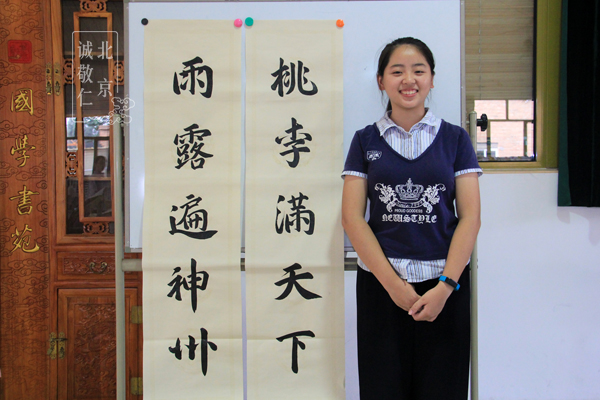 桃李滿天下
雨露遍神州
國學書苑
北京
诚敬仁
NEWSTYLE